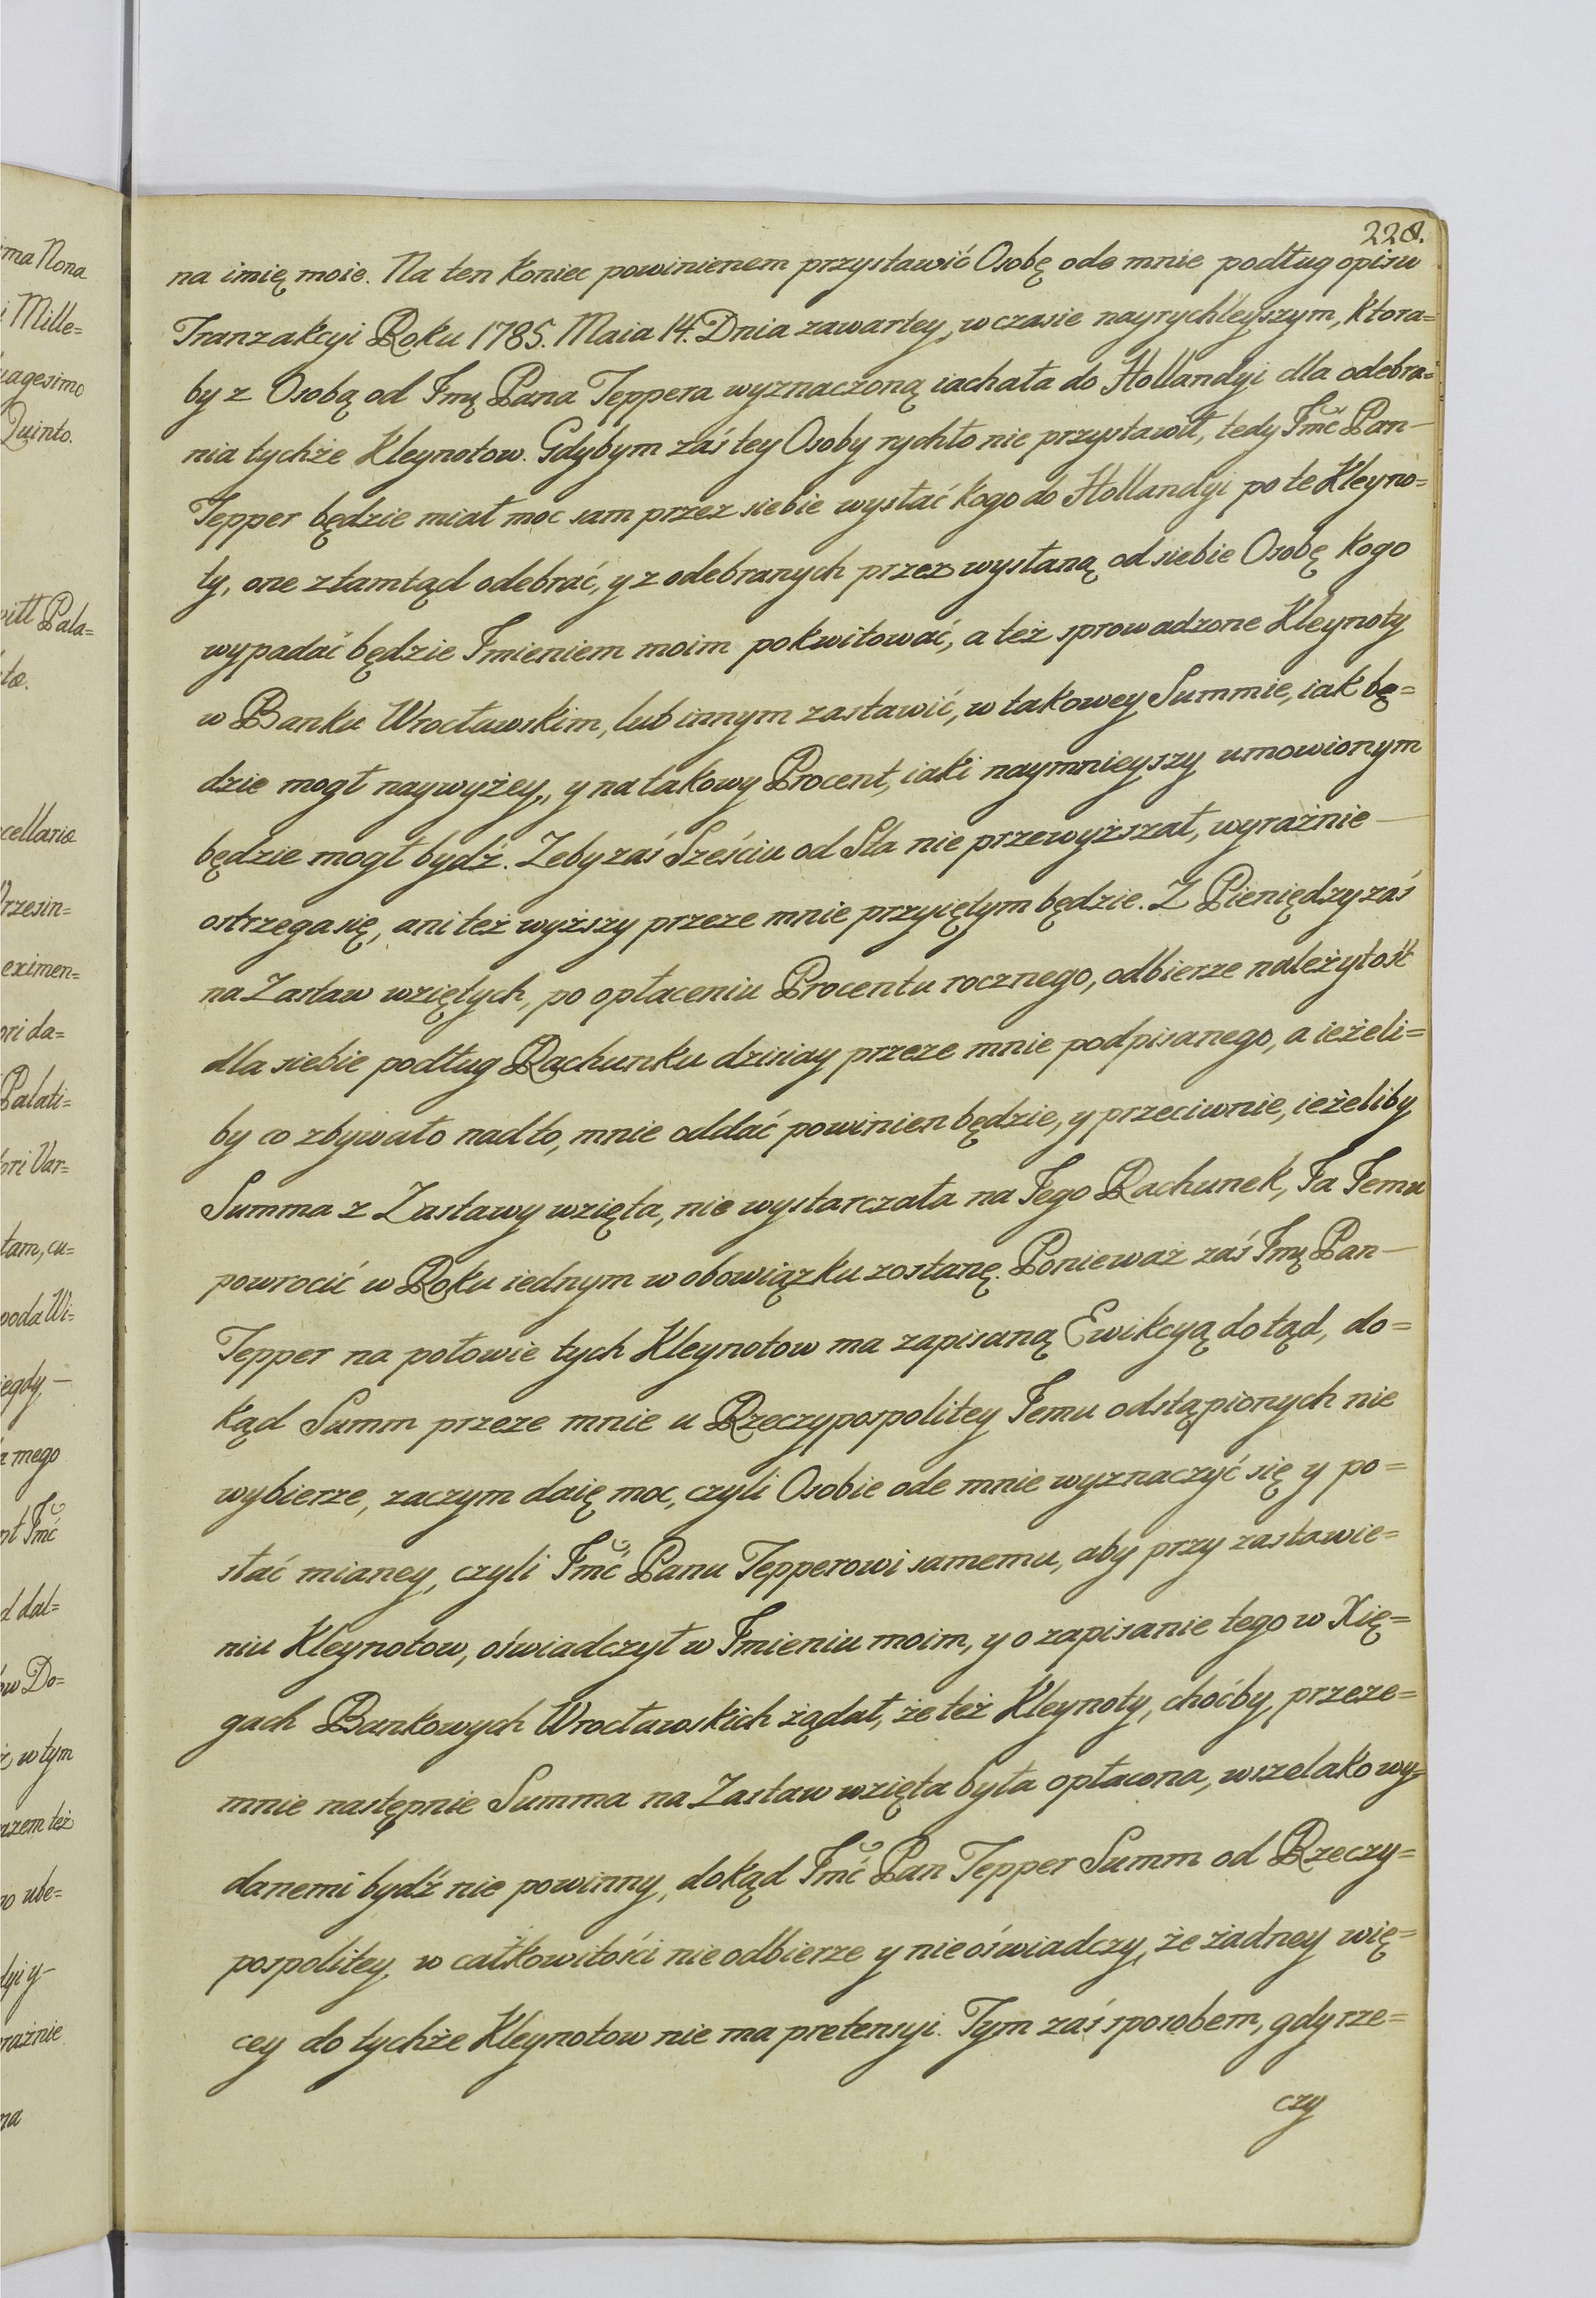 228.
na imię moie. Na ten koniec powinienem przystawić Osobę ode mnie podług opisu
Tranzakcyi Roku 1785. Maia 14. Dnia zawartey, w czasie nayrychleyszym, ktora=
by z Osobą od Jmę Pana Teppera wyznaczoną iachała do Hollandyi dla odebra=
nia tychże Kleynotow. Gdybym zaś tey Osoby rychło nie przystawił, tedy Jmć Pan—
Tepper będzie miał moc sam przez siebie wysłać kogo do Hollandyi po te Kleyno=
ty, one ztamtąd odebrać, y z odebranych przez wysłaną od siebie Osobę kogo
wypadać będzie Jmieniem moim pokwitować, a też sprowadzone Kleynoty
w Banku Wrocławskim, lub innym zastawić, w takowey Summie, iak bę=
dzie mogł naywyżey, y na takowy Procent, iaki naymnieyszy umowionym
będzie mogł bydź. Zeby zaś Sześciu od Sta nie przewyższał, wyraźnie—
ostrzega się, ani też wyższy przeze mnie przyiętym będzie. Z Pieniędzy zaś
na Zastaw wziętych, po opłaceniu Procentu rocznego, odbierze należytość
dla siebie podług Rachunku dzisiay przeze mnie podpisanego, a ieżeli=
by co zbywało nad to, mnie oddać powinien będzie, y przeciwnie, ieżeliby
Summa z Zastawy wzięta, nie wystarczała na Jego Rachunek, Ja Jemu
powrocić w Roku iednym w obowiązku zostanę. Ponieważ zaś Jmę Pan—
Tepper na połowie tych Kleynotow ma zapisaną Ewikcyą dotąd, do=
kąd Summ przeze mnie u Rzeczypospolitey Jemu odstąpionych nie
wybierze, zaczym daię moc, czyli Osobie ode mnie wyznaczyć się y po=
słać mianey, czyli Jmć Panu Tepperowi samemu, aby przy zastawie=
niu Kleynotow, oświadczył w Jmieniu moim, y o zapisanie tego w Xię=
gach Bankowych Wrocławskich żądał, że też Kleynoty, choćby, przeze=
mnie następnie Summa na Zastaw wzięta była opłacona, wszelako wy=
danemi bydź nie powinny, dokąd Jmć Pan Tepper Summ od Rzeczy=
pospolitey, w całkowitości nie odbierze y nie oświadczy, że żadney wię=
cey do tychże Kleynotow nie ma pretensyi. Tym zaś sposobem, gdy rze=
czy
ma Nona
Mille=
agesimo
Quinto.
Pala=
cellariæ
rzesin=
eximen=
ori da=
Palati=
ori Var=
tam, cu=
poda Wi=
iegdy—
mego
Jmć
dal=
Do=
w tym
też
ube=
y—
raźnie
na